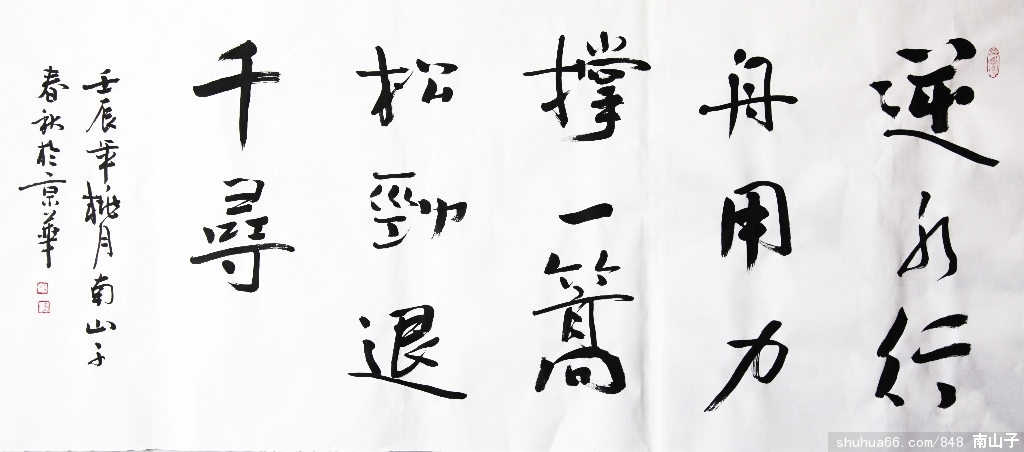 逆水行
舟用力
撐一篙
松勁退
千尋
壬辰年桃月南山子
春秋於京華
shuhua66.com/848 南山子